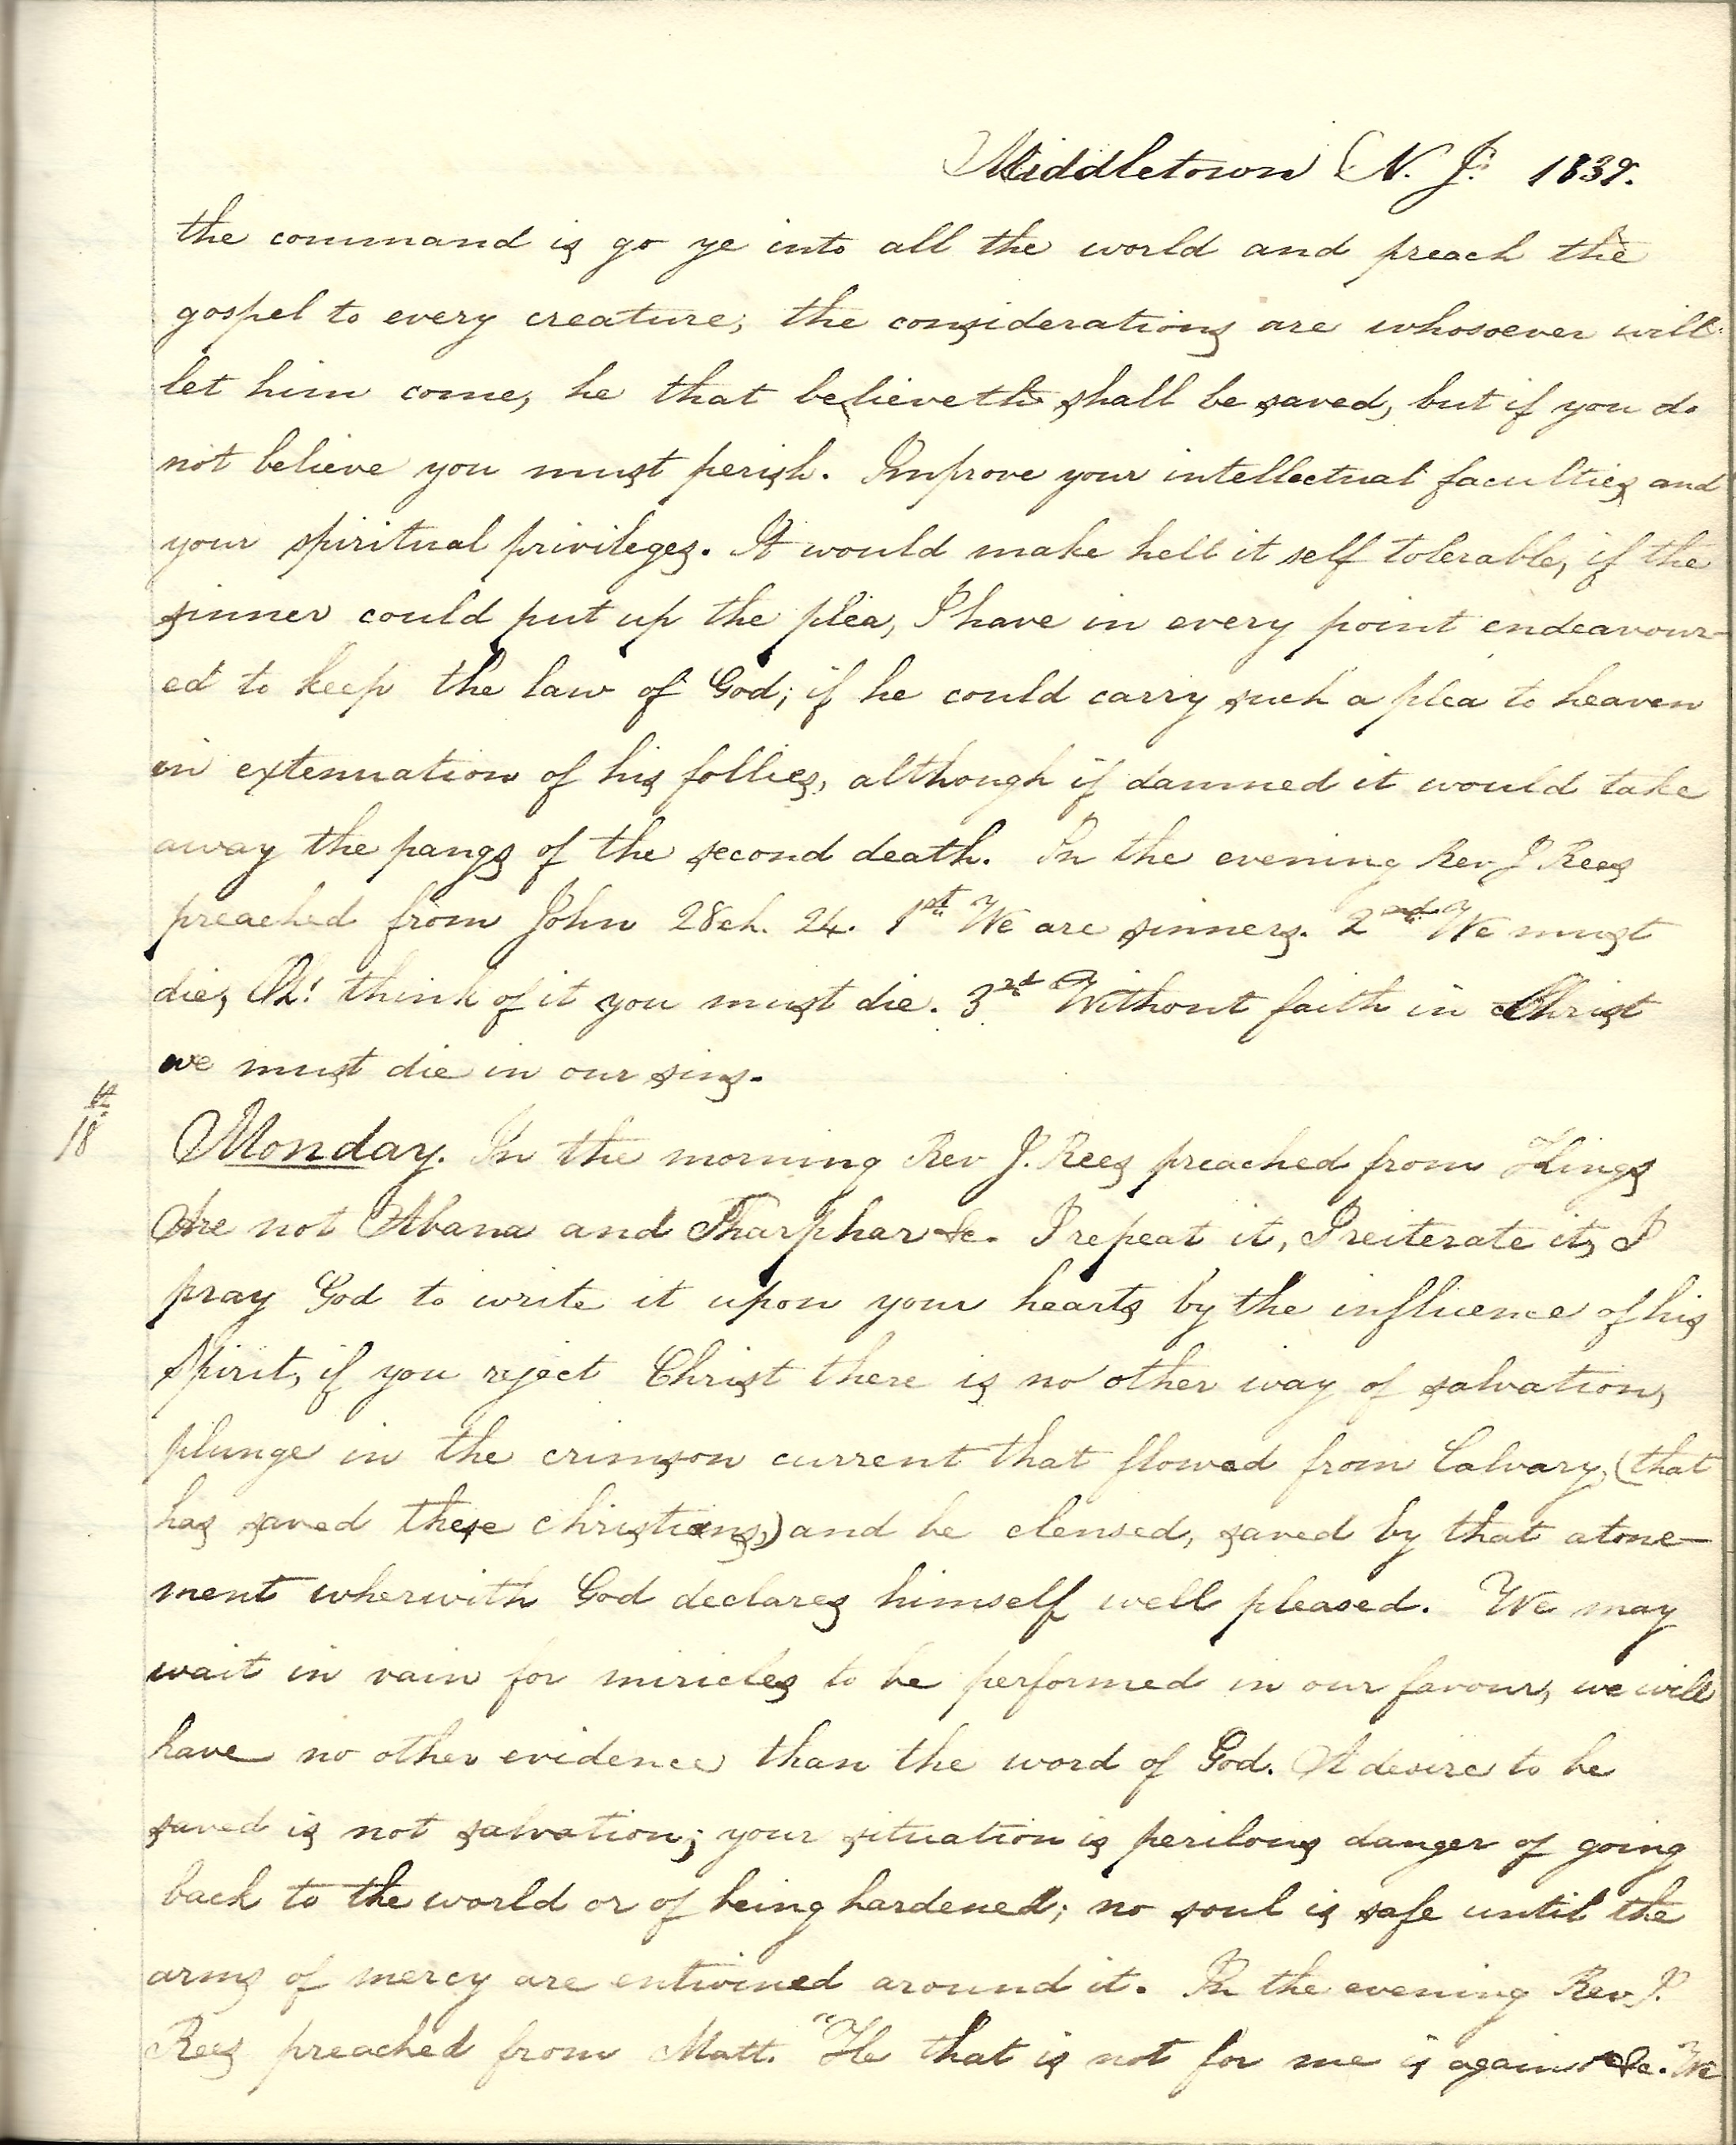 Middletown N. J. 1839.
the command is go ye into all the world and preach the
gospel to every creature; the considerations are whosoever will
let him come, he that believeth shall be saved, but if you do
not believe you must perish. Improve your intellectual faculties and
your spiritual privileges. It would make hell it self tolerable, if the
sinner could put up the plea, I have in every point endeavour-
ed to keep the law of God; if he could carry such a plea to heaven
in extenuation of his follies, although if damned it would take
away the pangs of the second death. In the evening Rev J Rees
preached from John 28ch. 24. 1st We are sinners. 2nd We must
die, Oh! think of it you must die. 3rd Without faith in Christ
we must die in our sins.
18th
Monday. In the morning Rev J. Rees preached from Kings
Are not Abana and Pharphar &c. I repeat it, I reiterate it, I
pray God to write it upon your hearts by the influence of his
Spirit, if you reject Christ there is no other way of salvation,
plunge in the crimson current that flowed from Calvary, (that
has saved these christians,) and be clensed, saved by that atone-
ment wherwith God declares himself well pleased. We may
wait in vain for miricles to be performed in our favour, we will
have no other evidence than the word of God. A desire to be
saved is not salvation; your situation is perilous danger of going
back to the world or of being hardened; no soul is safe until the
arms of mercy are entwined around it. In the evening Rev J.
Rees preached from Matt. "He that is not for me is against &c. We